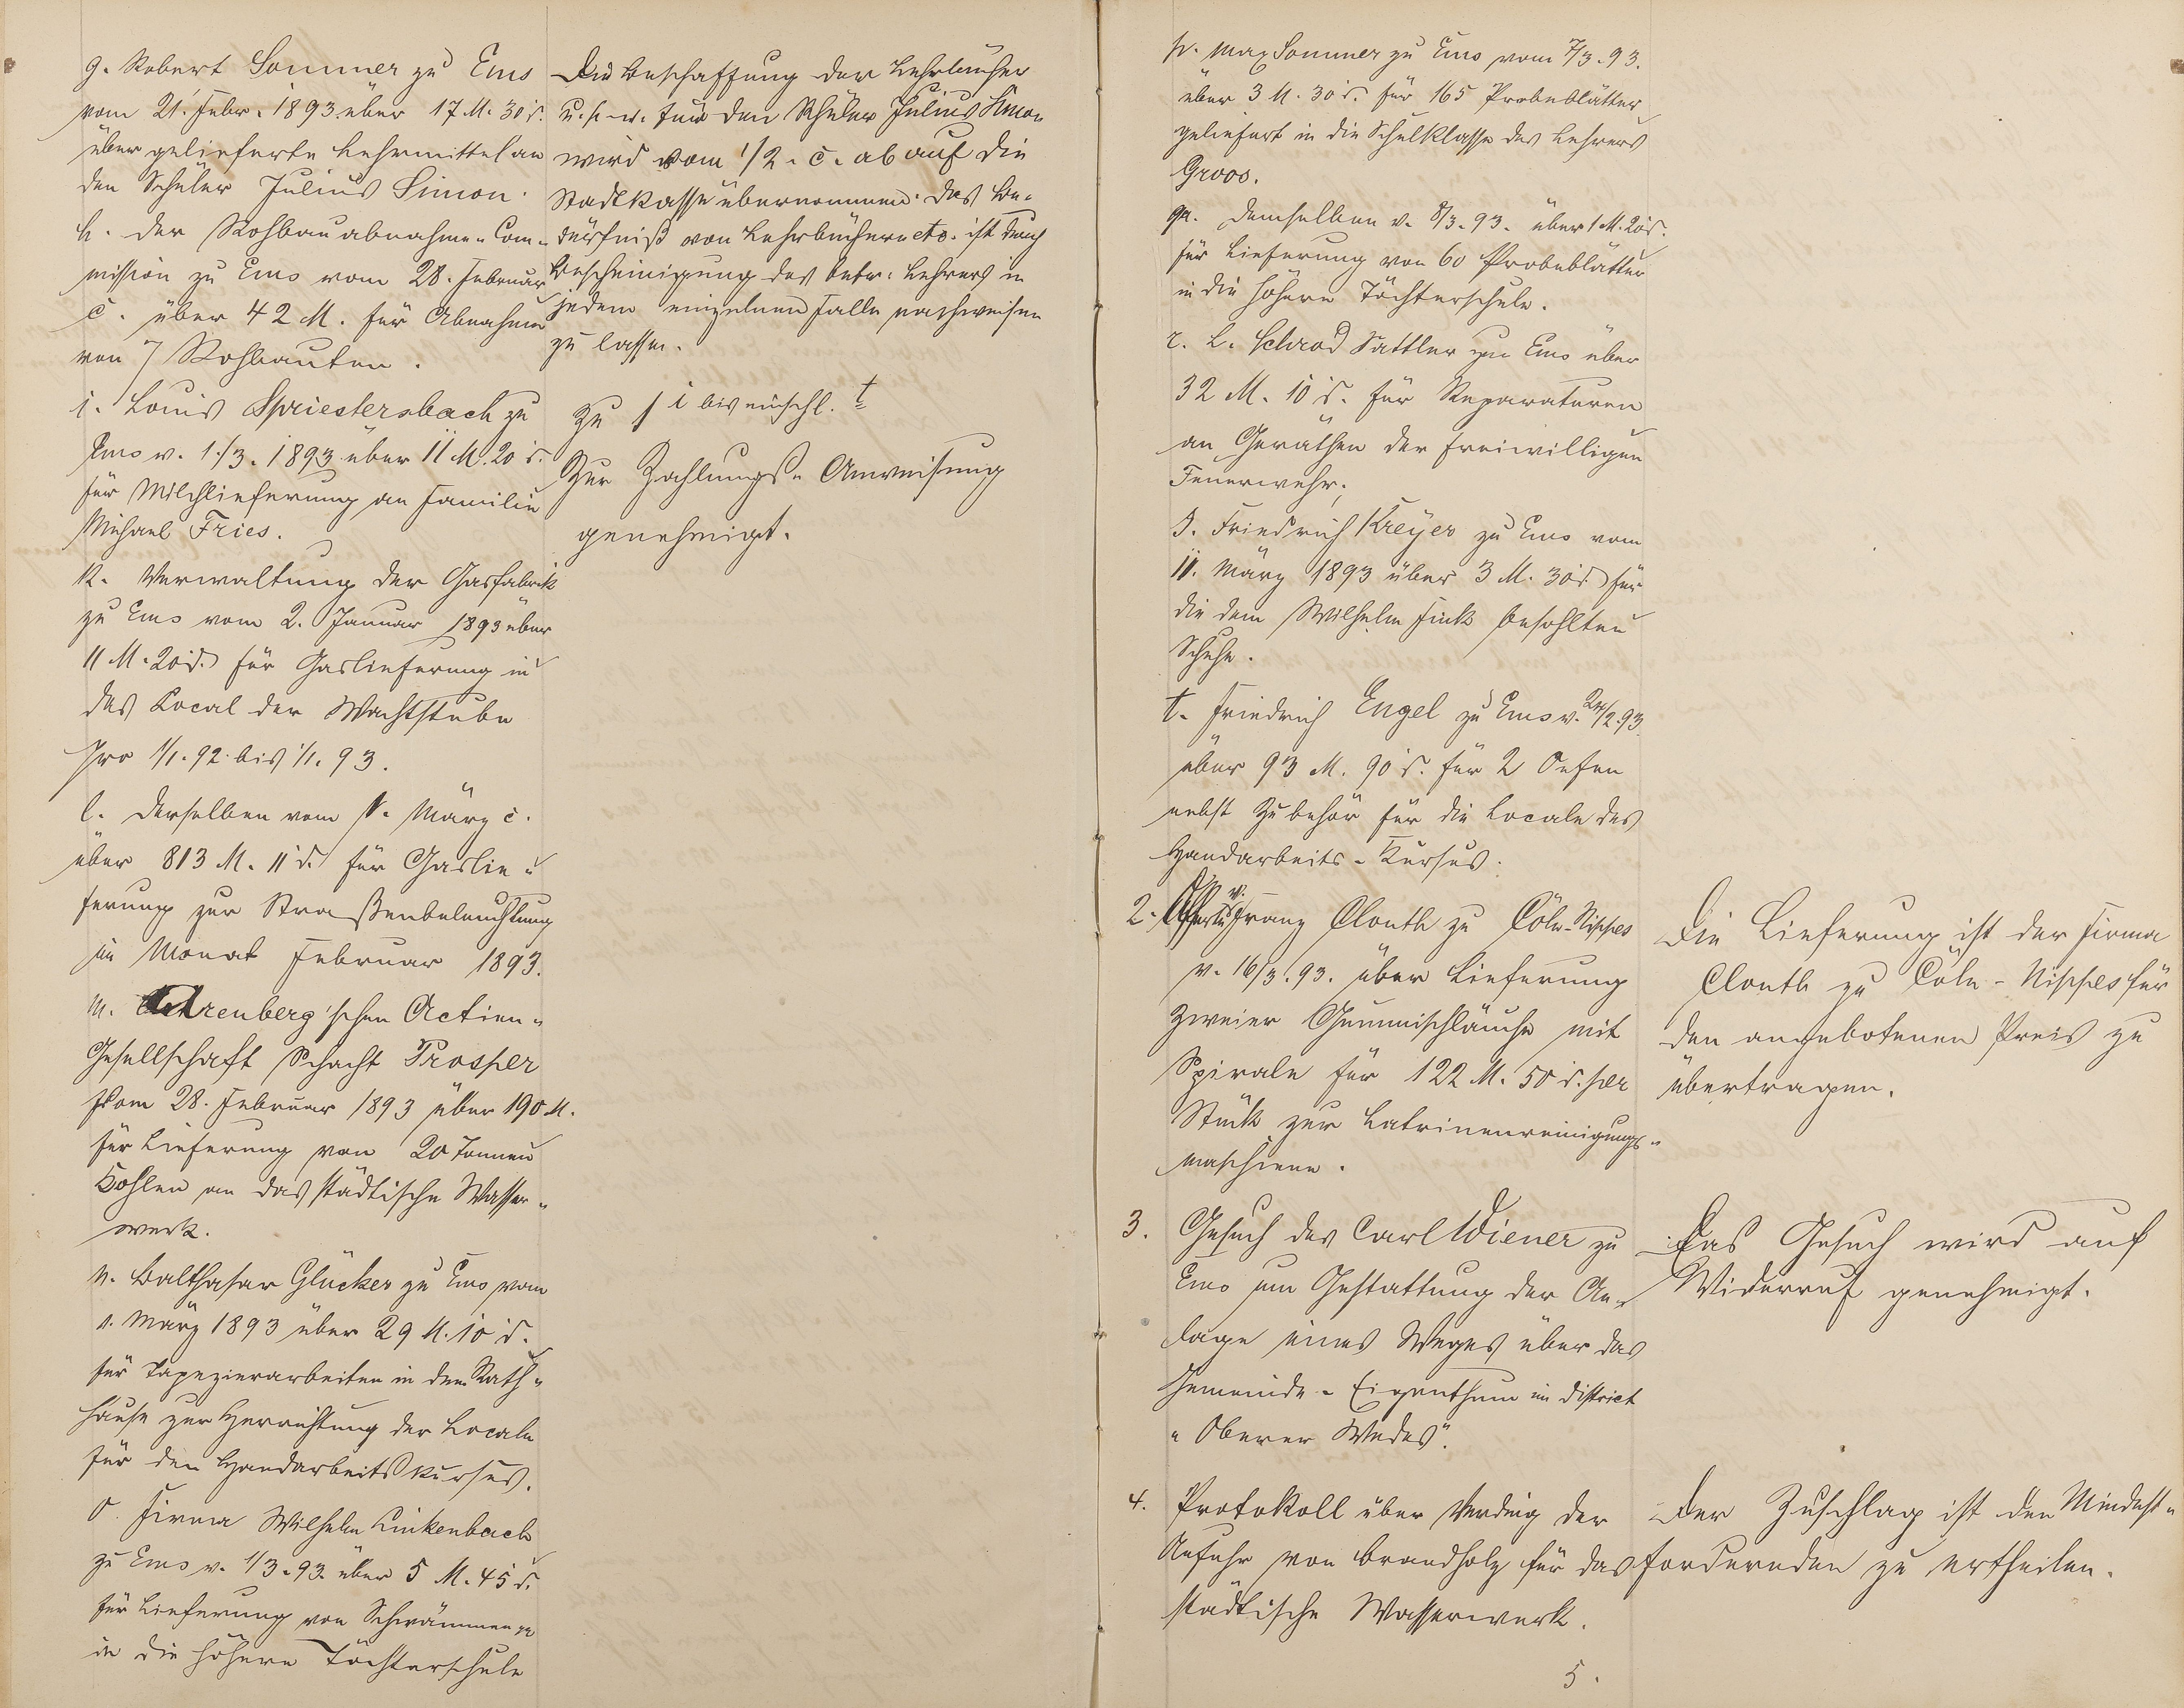 g. Robert Sommer zu Ems
vom 21. Febr. 1893 über 17 M. 30 d.
über gelieferte Lehrmittel an
den Schüler Julius Simon.
h. der Rohbauabnahme-Com-
mission zu Ems vom 28. Februar
c. über 42 M. für Abnahme
von 7 Rohbauten.
i. Louis Spriestersbach zu
Ems v. 1./3. 1893 über 11 M. 20 d.
für Milchlieferung an Familie
Michael Fries.
k. Verwaltung der Gasfabrik
zu Ems vom 2. Januar 1893 über
11 M. 20 d. für Gaslieferung in
das Local der Wachtstube
pro 1/1. 92. bis 1/1. 93.
l. derselben vom 1. März c.
über 813 M. 11 d. für Gaslie-
ferung zur Straßenbeleuchtung
im Monat Februar 1893.
m. Arenberg'schen Actien-
Gesellschaft Schacht Prosper
vom 28. Februar 1893 über 190 M.
für Lieferung von 20 Tonnen
Kohlen an das städtische Wasser-
werk.
n. Balthasar Glücker zu Ems vom
1. März 1893 über 29 M. 10 d.
für Tapezierarbeiten in dem Rath-
hause zur Herrichtung der Locale
für den Handarbeitskursus.
o. Firma Wilhelm Linkenbach
zu Ems v. 1/3. 93. über 5 M. 45 d.
für Lieferung von Schwämmen
in die höhere Töchterschule
Die Beschaffung der Lehrbücher
u. s. w. für den Schüler Julius Simon
wird vom 1/2. c. ab auf die
Stadtkasse übernommen. Das Be-
dürfniß von Lehrbüchern etc. ist durch
Bescheinigung des betr. Lehrers in
jedem einzelnen Falle nachweisen
zu lassen.
Zu 1 i bis einschl. t
Zur Zahlungs-Anweisung
genehmigt.
p. Max Sommer zu Ems vom 7/3. 93.
über 3 M. 30 d. für 165 Probeblätter
geliefert in die Schulklasse des Lehrers
Groos.
q. demselben v. 8/3. 93. über 1 M. 20 d.
für Lieferung von 60 Probeblätter
in die höhere Töchterschule.
r. L. Schrod Sattler zu Ems über
32 M. 10 d. für Reparaturen
an Geräthen der freiwilligen
Feuerwehr.
s. Friedrich Kreyer zu Ems vom
11. März 1893 über 3 M. 30 d. für
die dem Wilhelm Fink besohlten
Schuhe.
t. Friedrich Engel zu Ems v. 24/2. 93.
über 93 M. 90 d. für 2 Oefen
nebst Zubehör für die Locale des
Handarbeits-Kursus.
2. Offerte v. Franz Clouth zu Cöln-Nippes
v. 16/3. 93. über Lieferung
zweier Gummischläuche mit
Spirale für 122 M. 50 d. per
Stück zur Latrinenreinigungs-
maschine.
Die Lieferung ist der Firma
Clouth zu Cöln-Nippes für
den angebotenen Preis zu
übertragen.
3. Gesuch des Carl Wiener zu
Ems um Gestattung der An-
lage eines Weges über das
Gemeinde-Eigenthum im District
"Oberer Wedes".
Das Gesuch wird auf
Widerruf genehmigt.
4. Protokoll über Verding der
Anfuhr von Brandholz für das
städtische Wasserwerk.
Der Zuschlag ist den Mindest-
fordernden zu ertheilen.
5.